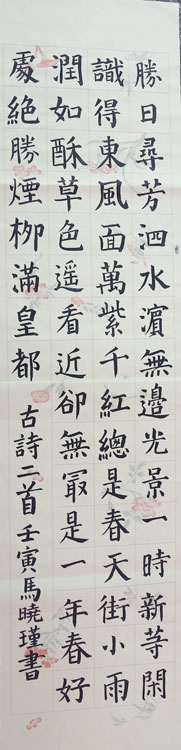 勝日尋芳泗水濱無邊光景一時新等閑
識得東風面萬紫千紅總是春天街小雨
潤如酥草色遥看近卻無冣是一年春好
處絶勝煙栁滿皇都 古詩二首壬寅馬曉瑾書